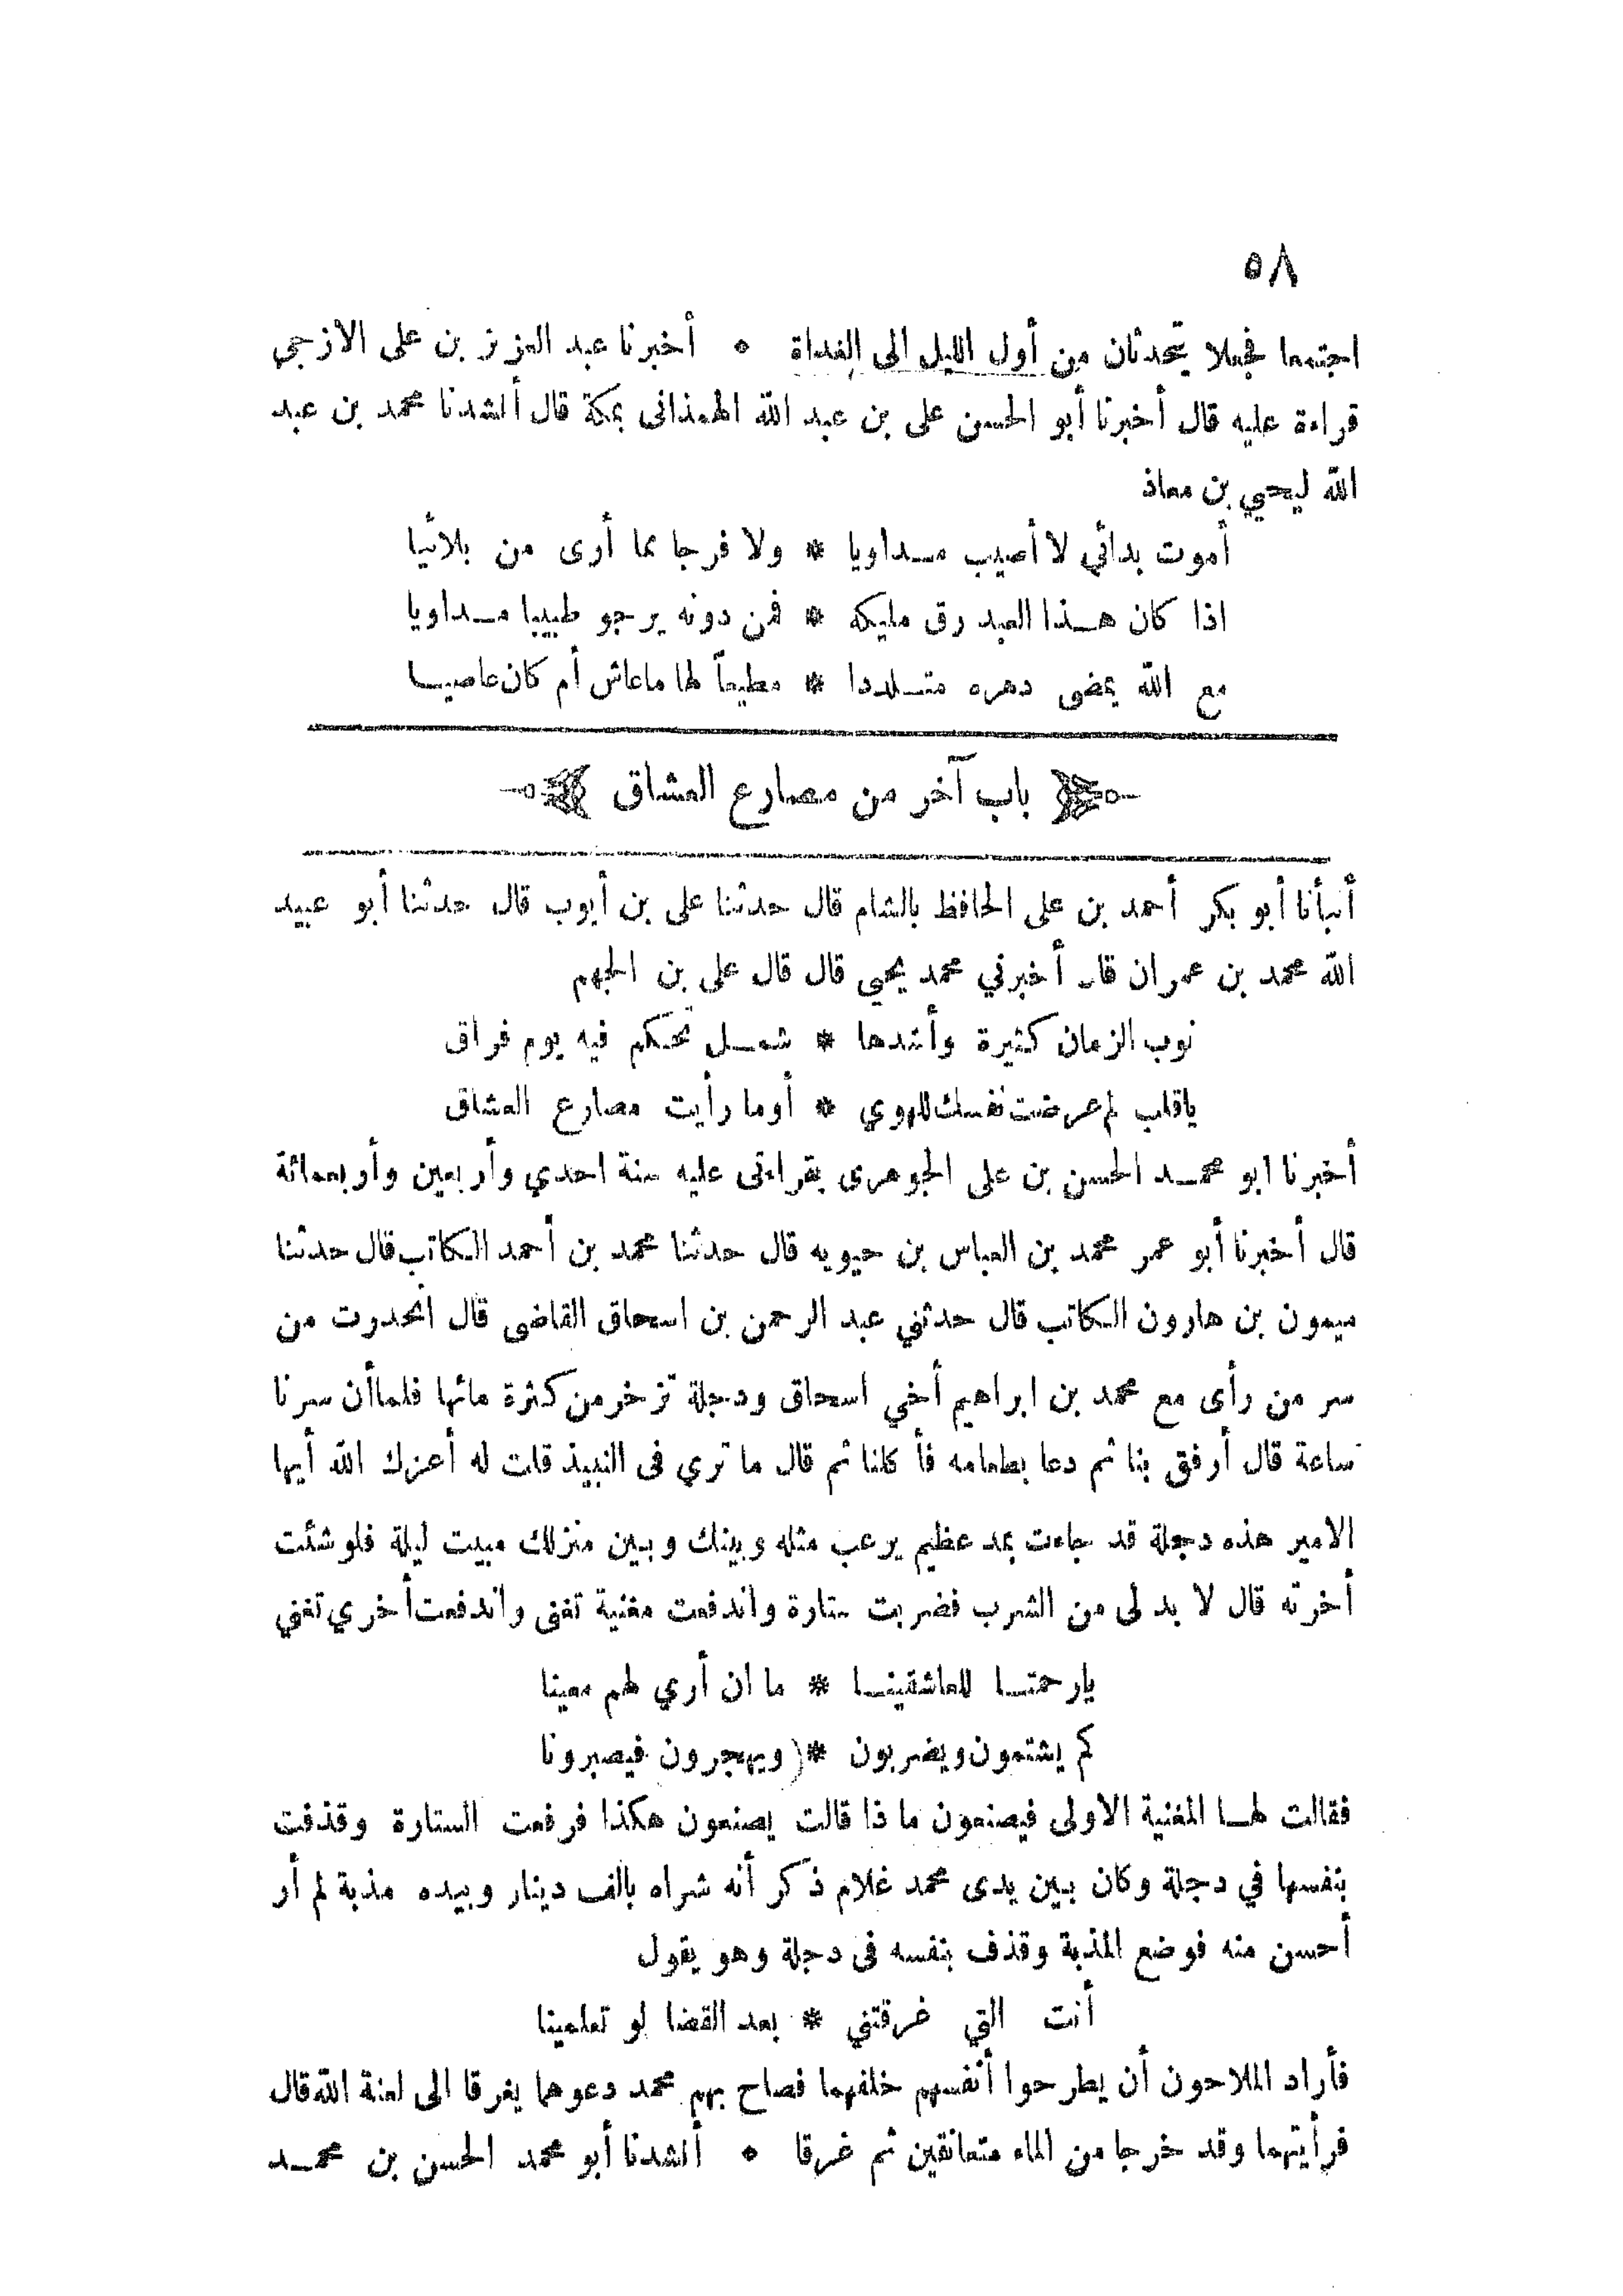 ٥٨
اجتمعا فجعلا يتحدثان من أول الليل الى الغداة ٥ أخبرنا عبد العزيز بن على الازجى
قراءة عليه قال أخبرنا أبو الحسن على بن عبد الله الهمذانى بمكة قال أنشدنا محمد بن عبد
الله ليحيي بن معاذ
أموت بدائي لا أصيب مـداويا * ولا فرجا مما أرى من بلائيا
اذا كان هـذا العبد رق مليكه * فمن دونه يرجو طبيبا مـداويا
مع الله يمضى دهره متـلددا * مطيعاً لها ماعاش أم كان عاصيـا
باب آخر من مصارع العشاق
أنبأنا أبو بكر أحمد بن على الحافظ بالشام قال حدثنا على بن أيوب قال حدثنا أبو عبيد
الله محمد بن عمران قال أخبرني محمد يحيى قال قال على بن الجهم
نوب الزمان كثيرة وأشدها * شمـل تحكم فيه يوم فراق
ياقلب لم عرضت نفسك للهوي * أوما رأيت مصارع العشاق
أخبرنا ابو محمـد الحسن بن على الجوهرى بقراءتى عليه سنة احدي وأربعين وأربعمائة
قال أخبرنا أبو عمر محمد بن العباس بن حيويه قال حدثنا محمد بن أحمد الكاتب قال حدثنا
ميمون بن هارون الكاتب قال حدثني عبد الرحمن بن اسحاق القاضى قال انحدرت من
سر من رأى مع محمد بن ابراهيم أخي اسحاق ودجلة تزخر من كثرة مائها فلما أن سرنا
ساعة قال أرفق بنا ثم دعا بطعامه فأكلنا ثم قال ما تري فى النبيذ قلت له أعزك الله أيها
الامير هذه دجلة قد جاءت بمد عظيم يرعب مثله وبينك وبين منزلك مبيت ليلة فلو شئت
أخرته قال لا بد لى من الشرب فضربت ستارة واندفعت مغنية تغنى واندفعت أخري تغني
يارحمتـا للعاشقينـا * ما ان أري لهم معينا
كم يشتمون ويضربون * (ويهجرون فيصبرونا
فقالت لهـا المغنية الاولى فيصنعون ما ذا قالت يصنعون هكذا فرفعت الستارة وقذفت
بنفسها في دجلة وكان بين يدى محمد غلام ذكر أنه شراه بالف دينار وبيده مذبة لم أر
أحسن منه فوضع المذبة وقذف بنفسه فى دجلة وهو يقول
أنت التي غرقتني * بعد القضا لو تعلمينا
فأراد الملاحون أن يطرحوا أنفسهم خلفهما فصاح بهم محمد دعوهما يغرقا الى لعنة الله قال
فرأيتهما وقد خرجا من الماء متعانقين ثم غرقا ٥ أنشدنا أبو محمد الحسن بن محمـد